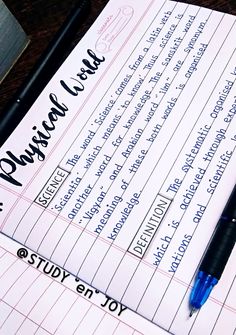 Physical World
SCIENCE
The word 'Science' comes from a latin verb
'Scientia' which means 'to know'. Thus science is
another word for knowledge. The sanskrit word
"Vigyan" and Arabian word "Ilm" are synonym.
meaning of these both words is organised
knowledge.
DEFINITION
The systematic organised
which is achieved through
vations and scientific
@STUDY "en" JOY